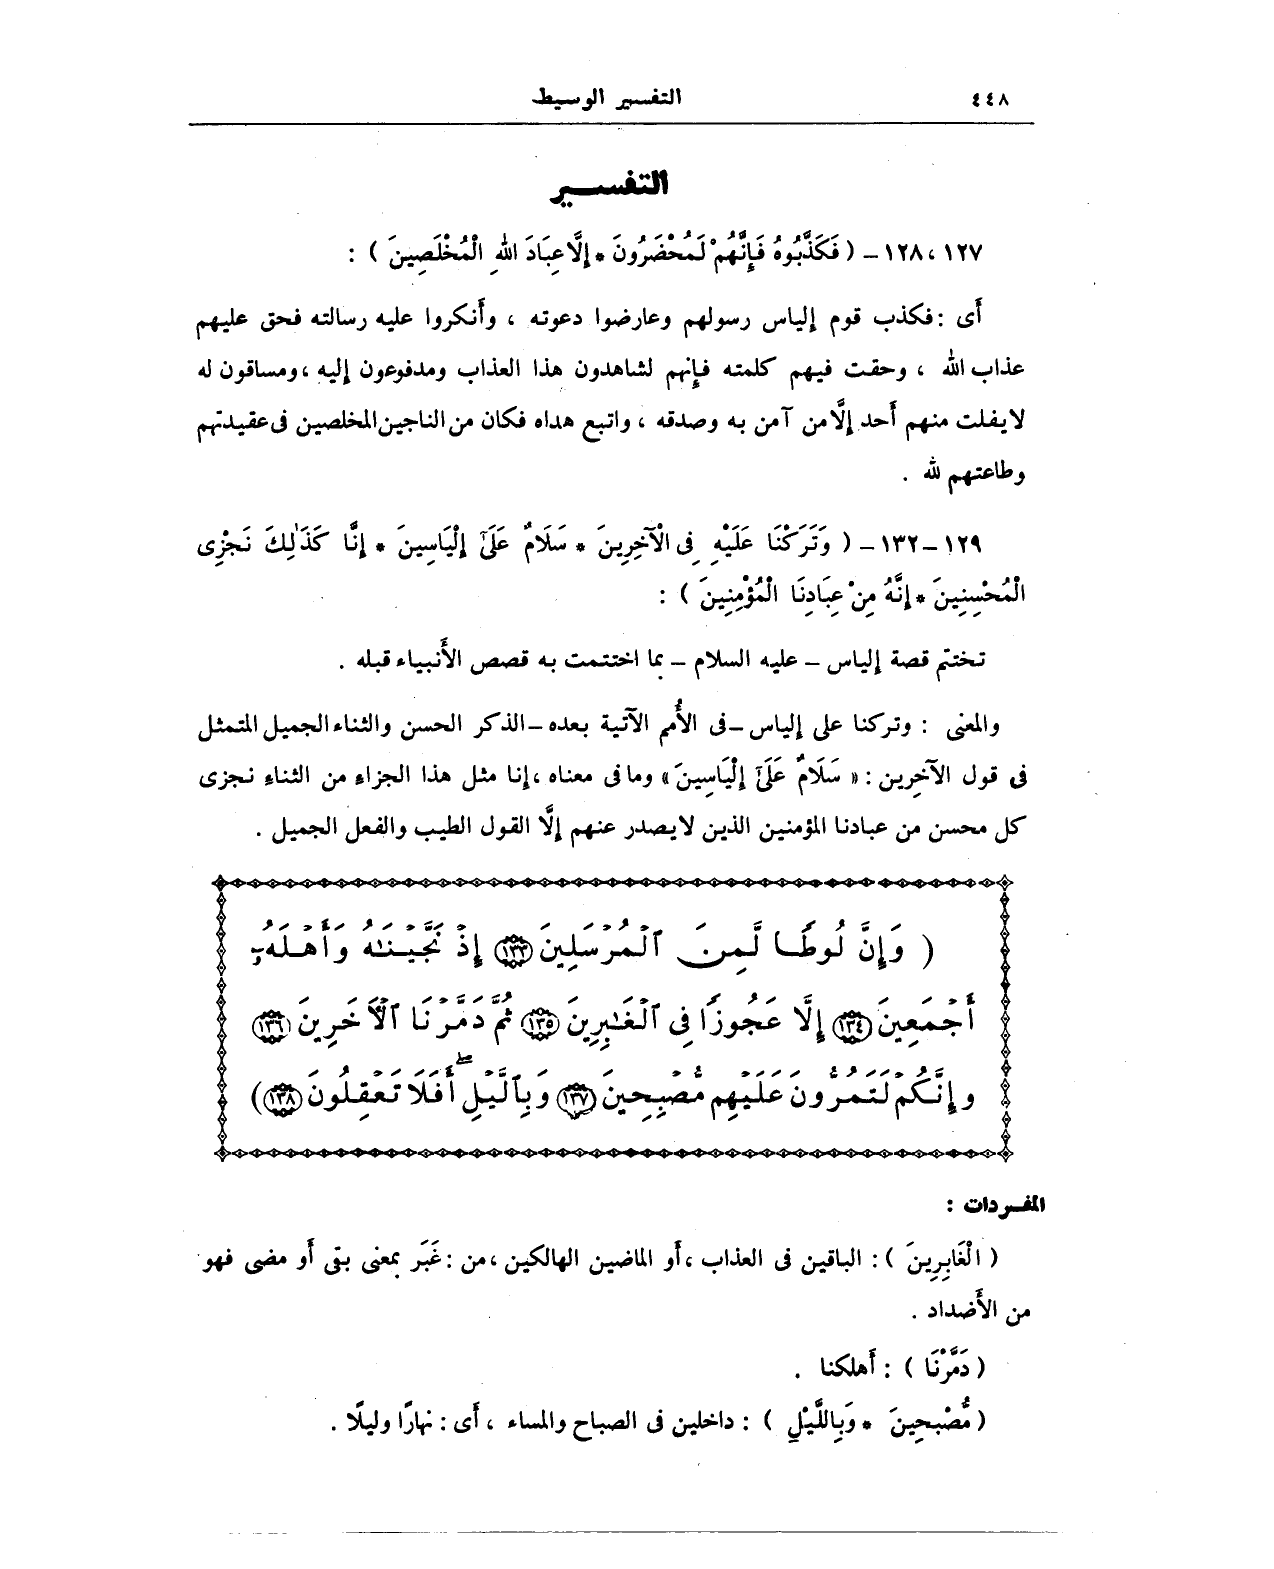 ٤٤٨ التفسير الوسيط
التفسير
١٢٧ ، ١٢٨ – ( فَكَذَّبُوهُ فَإِنَّهُمْ لَمُحْضَرُونَ * إِلَّا عِبَادَ اللهِ الْمُخْلَصِينَ ) :
أَى : فكذب قوم إلياس رسولهم وعارضوا دعوته ، وأَنكروا عليه رسالته فحق عليهم
عذاب الله ، وحقت فيهم كلمته فإنهم لشاهدون هذا العذاب ومدفوعون إليه ، ومساقون له
لا يفلت منهم أَحد إلَّا من آمن به وصدقه ، واتبع هداه فكان من الناجين المخلصين فى عقيدتهم
وطاعتهم لله .
١٢٩ – ١٣٢ – ( وَتَرَكْنَا عَلَيْهِ فِى الْآخِرِينَ * سَلَامٌ عَلَىٰٓ إِلْيَاسِينَ * إِنَّا كَذَٰلِكَ نَجْزِى
الْمُحْسِنِينَ * إِنَّهُ مِنْ عِبَادِنَا الْمُؤْمِنِينَ ) :
تختتم قصة إلياس – عليه السلام – بما اختتمت به قصص الأَنبياء قبله .
والمعنى : وتركنا على إلياس – فى الأُمم الآتية بعده – الذكر الحسن والثناء الجميل المتمثل
فى قول الآخرين : « سَلَامٌ عَلَىٰٓ إِلْيَاسِينَ » وما فى معناه ، إنا مثل هذا الجزاء من الثناء نجزى
كل محسن من عبادنا المؤمنين الذين لا يصدر عنهم إلَّا القول الطيب والفعل الجميل .
( وَإِنَّ لُوطًا لَّمِنَ ٱلْمُرْسَلِينَ ١٣٣ إِذْ نَجَّيْنَٰهُ وَأَهْلَهُۥٓ
أَجْمَعِينَ ١٣٤ إِلَّا عَجُوزًا فِى ٱلْغَٰبِرِينَ ١٣٥ ثُمَّ دَمَّرْنَا ٱلْأٓخَرِينَ ١٣٦
وَإِنَّكُمْ لَتَمُرُّونَ عَلَيْهِم مُّصْبِحِينَ ١٣٧ وَبِٱلَّيْلِ ۖ أَفَلَا تَعْقِلُونَ ١٣٨ )
المفردات :
( الْغَابِرِينَ ) : الباقين فى العذاب ، أَو الماضين الهالكين ، من : غَبَر بمعنى بقى أَو مضى فهو
من الأَضداد .
( دَمَّرْنَا ) : أَهلكنا .
( مُّصْبِحِينَ * وَبِاللَّيْلِ ) : داخلين فى الصباح والمساء ، أَى : نهارًا وليلًا .